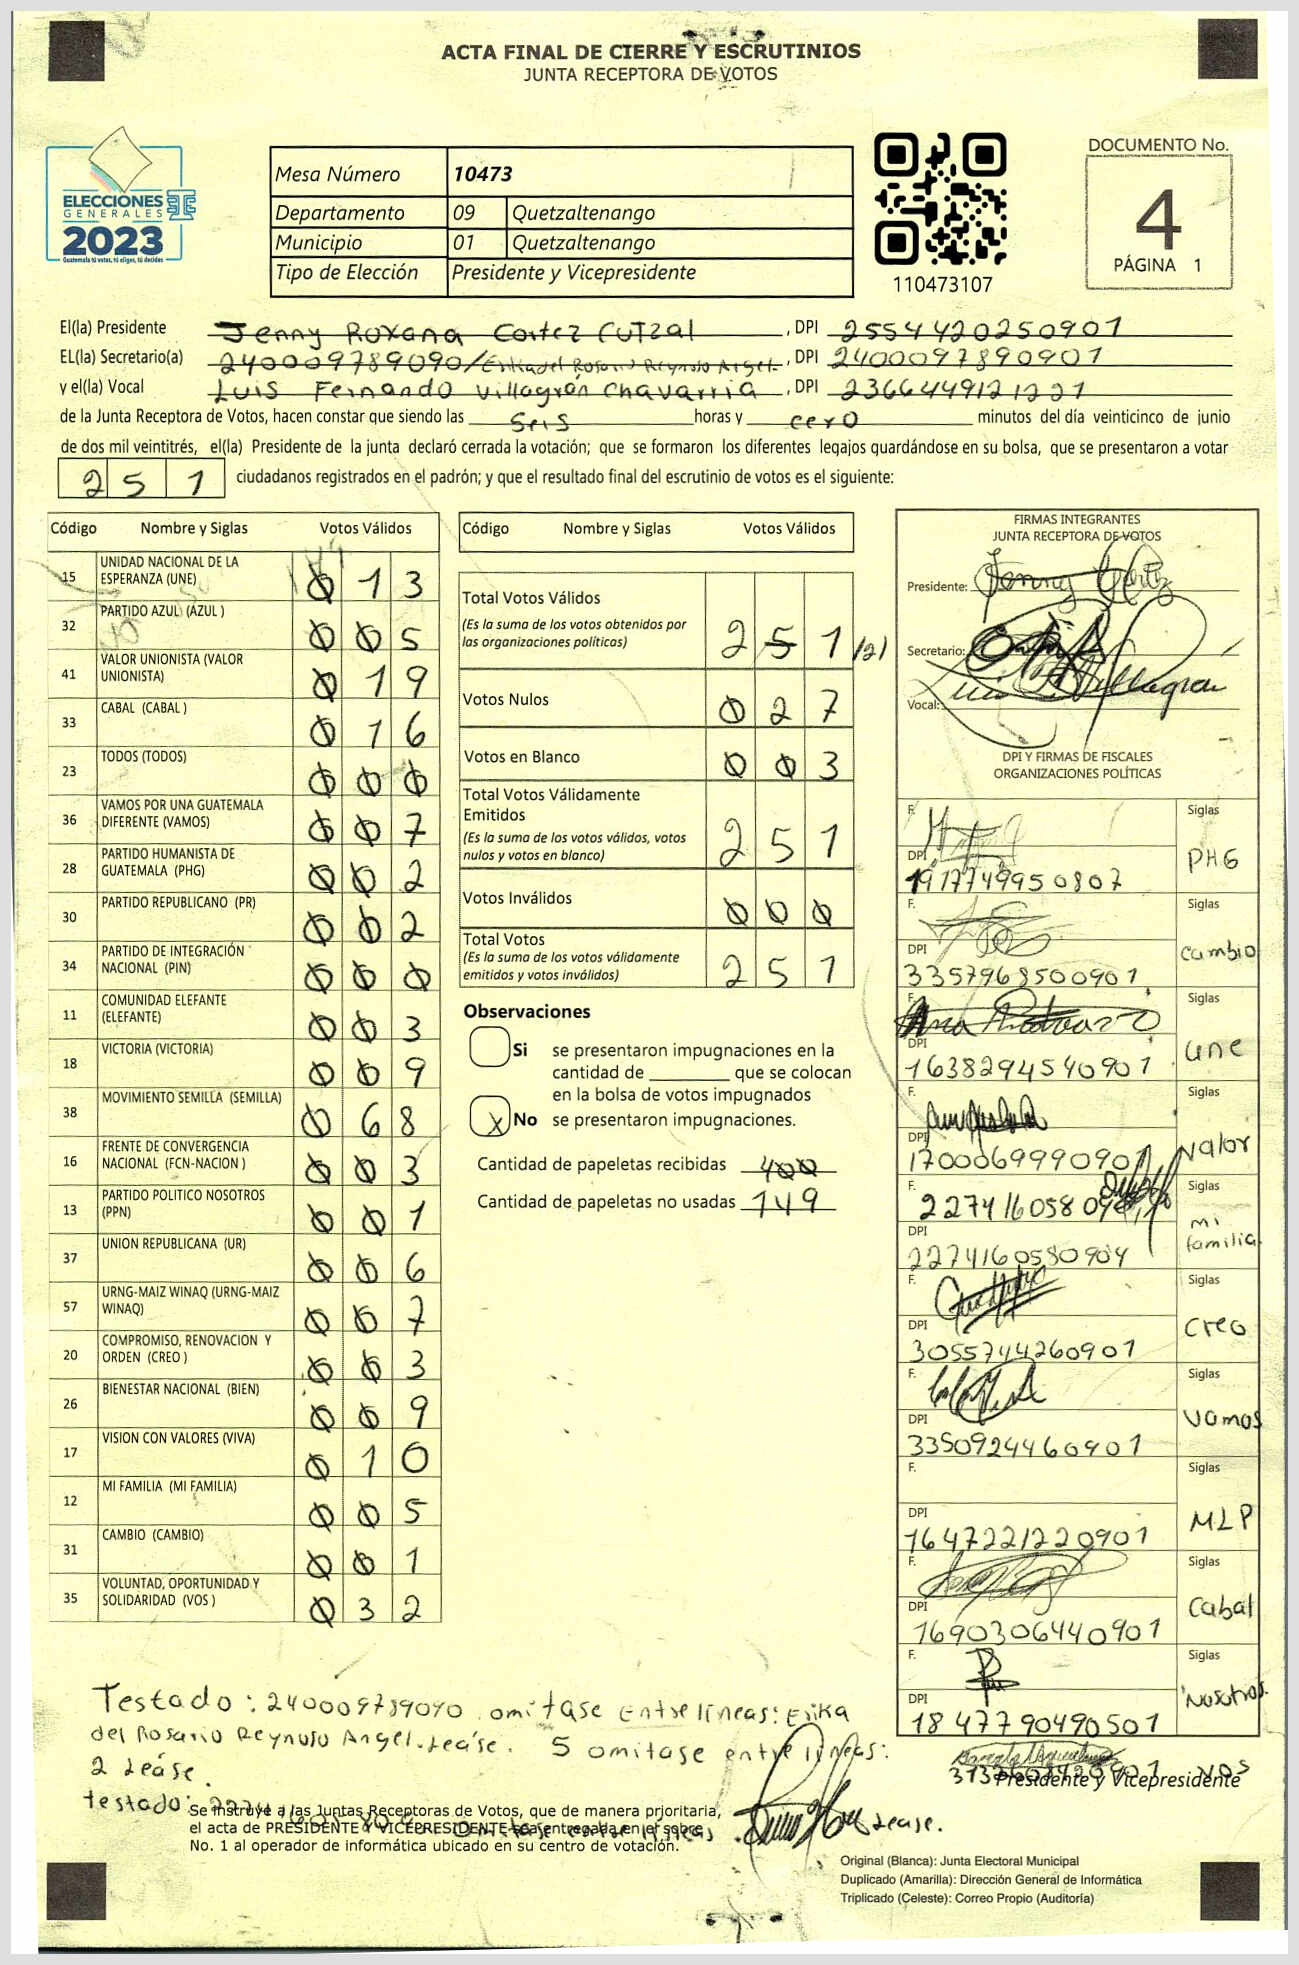 ACTA FINAL DE CIERRE Y ESCRUTINIOS
JUNTA RECEPTORA DE VOTOS
ELECCIONES
GENERALES
2023
Guatemala tú votas, tú eliges, tú decides
Mesa Número 10473
Departamento 09 Quetzaltenango
Municipio 01 Quetzaltenango
Tipo de Elección Presidente y Vicepresidente
110473107
DOCUMENTO No.
4
PÁGINA 1
El(la) Presidente Jenny Roxana Cortez Cutzal, DPI 2554420250901
EL(la) Secretario(a) 240009789090/Erika del Rosario Reynoso Angel, DPI 2400097890901
y el(la) Vocal Luis Fernando Villagrán Chavarria, DPI 2366449121221
de la Junta Receptora de Votos, hacen constar que siendo las seis horas y cero minutos del día veinticinco de junio
de dos mil veintitrés, el(la) Presidente de la junta declaró cerrada la votación; que se formaron los diferentes legajos guardándose en su bolsa, que se presentaron a votar
251 ciudadanos registrados en el padrón; y que el resultado final del escrutinio de votos es el siguiente:
Código Nombre y Siglas Votos Válidos
15 UNIDAD NACIONAL DE LA ESPERANZA (UNE) 0 1 3
32 PARTIDO AZUL (AZUL ) 0 0 5
41 VALOR UNIONISTA (VALOR UNIONISTA) 0 1 9
33 CABAL (CABAL ) 0 1 6
23 TODOS (TODOS) 0 0 0
36 VAMOS POR UNA GUATEMALA DIFERENTE (VAMOS) 0 0 7
28 PARTIDO HUMANISTA DE GUATEMALA (PHG) 0 0 2
30 PARTIDO REPUBLICANO (PR) 0 0 2
34 PARTIDO DE INTEGRACIÓN NACIONAL (PIN) 0 0 0
11 COMUNIDAD ELEFANTE (ELEFANTE) 0 0 3
18 VICTORIA (VICTORIA) 0 0 9
38 MOVIMIENTO SEMILLA (SEMILLA) 0 6 8
16 FRENTE DE CONVERGENCIA NACIONAL (FCN-NACION ) 0 0 3
13 PARTIDO POLITICO NOSOTROS (PPN) 0 0 1
37 UNION REPUBLICANA (UR) 0 0 6
57 URNG-MAIZ WINAQ (URNG-MAIZ WINAQ) 0 0 7
20 COMPROMISO, RENOVACION Y ORDEN (CREO ) 0 0 3
26 BIENESTAR NACIONAL (BIEN) 0 0 9
17 VISION CON VALORES (VIVA) 0 1 0
12 MI FAMILIA (MI FAMILIA) 0 0 5
31 CAMBIO (CAMBIO) 0 0 1
35 VOLUNTAD, OPORTUNIDAD Y SOLIDARIDAD (VOS ) 0 3 2
Código Nombre y Siglas Votos Válidos
Total Votos Válidos
(Es la suma de los votos obtenidos por
las organizaciones políticas) 2 5 1 /2/
Votos Nulos 0 2 7
Votos en Blanco 0 0 3
Total Votos Válidamente
Emitidos
(Es la suma de los votos válidos, votos
nulos y votos en blanco) 2 5 1
Votos Inválidos 0 0 0
Total Votos
(Es la suma de los votos válidamente
emitidos y votos inválidos) 2 5 1
Observaciones
Si se presentaron impugnaciones en la
cantidad de ________ que se colocan
en la bolsa de votos impugnados
x No se presentaron impugnaciones.
Cantidad de papeletas recibidas 400
Cantidad de papeletas no usadas 149
FIRMAS INTEGRANTES
JUNTA RECEPTORA DE VOTOS
Presidente: Jenny Cortez
Secretario:
Vocal: Luis F Villagrán
DPI Y FIRMAS DE FISCALES
ORGANIZACIONES POLÍTICAS
F. Siglas
DPI 1917749950807 PHG
F. Siglas
DPI 3357968500901 cambio
F. Siglas
DPI 1638294540901 une
F. Siglas
DPI 1700069990901 Valor
F. Siglas
DPI 2274160580904 mi familia
F. Siglas
DPI 3055744260901 Creo
F. Siglas
DPI 3350924460901 Vamos
F. Siglas
DPI 1647221220901 MLP
F. Siglas
DPI 1690306440901 Cabal
F. Siglas
DPI 1847790490501 Nosotros
VOS
Presidente y Vicepresidente
Testado: 240009789090 omitase Entre líneas: Erika
del Rosario Reynoso Angel. Léase. 5 omitase entre líneas:
2 Léase.
testado: omitase entre líneas Léase.
Se instruye a las Juntas Receptoras de Votos, que de manera prioritaria,
el acta de PRESIDENTE Y VICEPRESIDENTE sea entregada en el sobre
No. 1 al operador de informática ubicado en su centro de votación.
Original (Blanca): Junta Electoral Municipal
Duplicado (Amarilla): Dirección General de Informática
Triplicado (Celeste): Correo Propio (Auditoría)